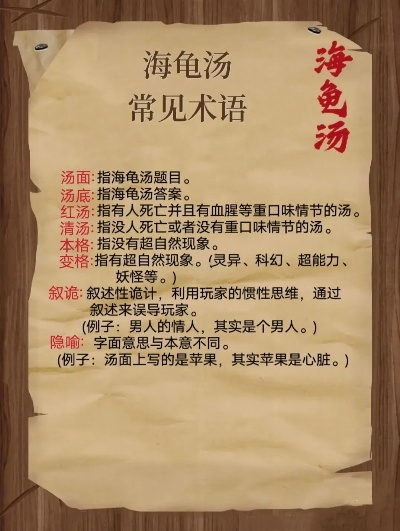 海龟汤
常见术语
海龟汤
汤面:指海龟汤题目。
汤底:指海龟汤答案。
红汤:指有人死亡并且有血腥等重口味情节的汤。
清汤:指没人死亡或者没有重口味情节的汤。
本格:指没有超自然现象。
变格:指有超自然现象。(灵异、科幻、超能力、
妖怪等。)
叙诡:叙述性诡计，利用玩家的惯性思维，通过
叙述来误导玩家。
(例子：男人的情人，其实是个男人。)
隐喻:字面意思与本意不同。
(例子：汤面上写的是苹果，其实苹果是心脏。)